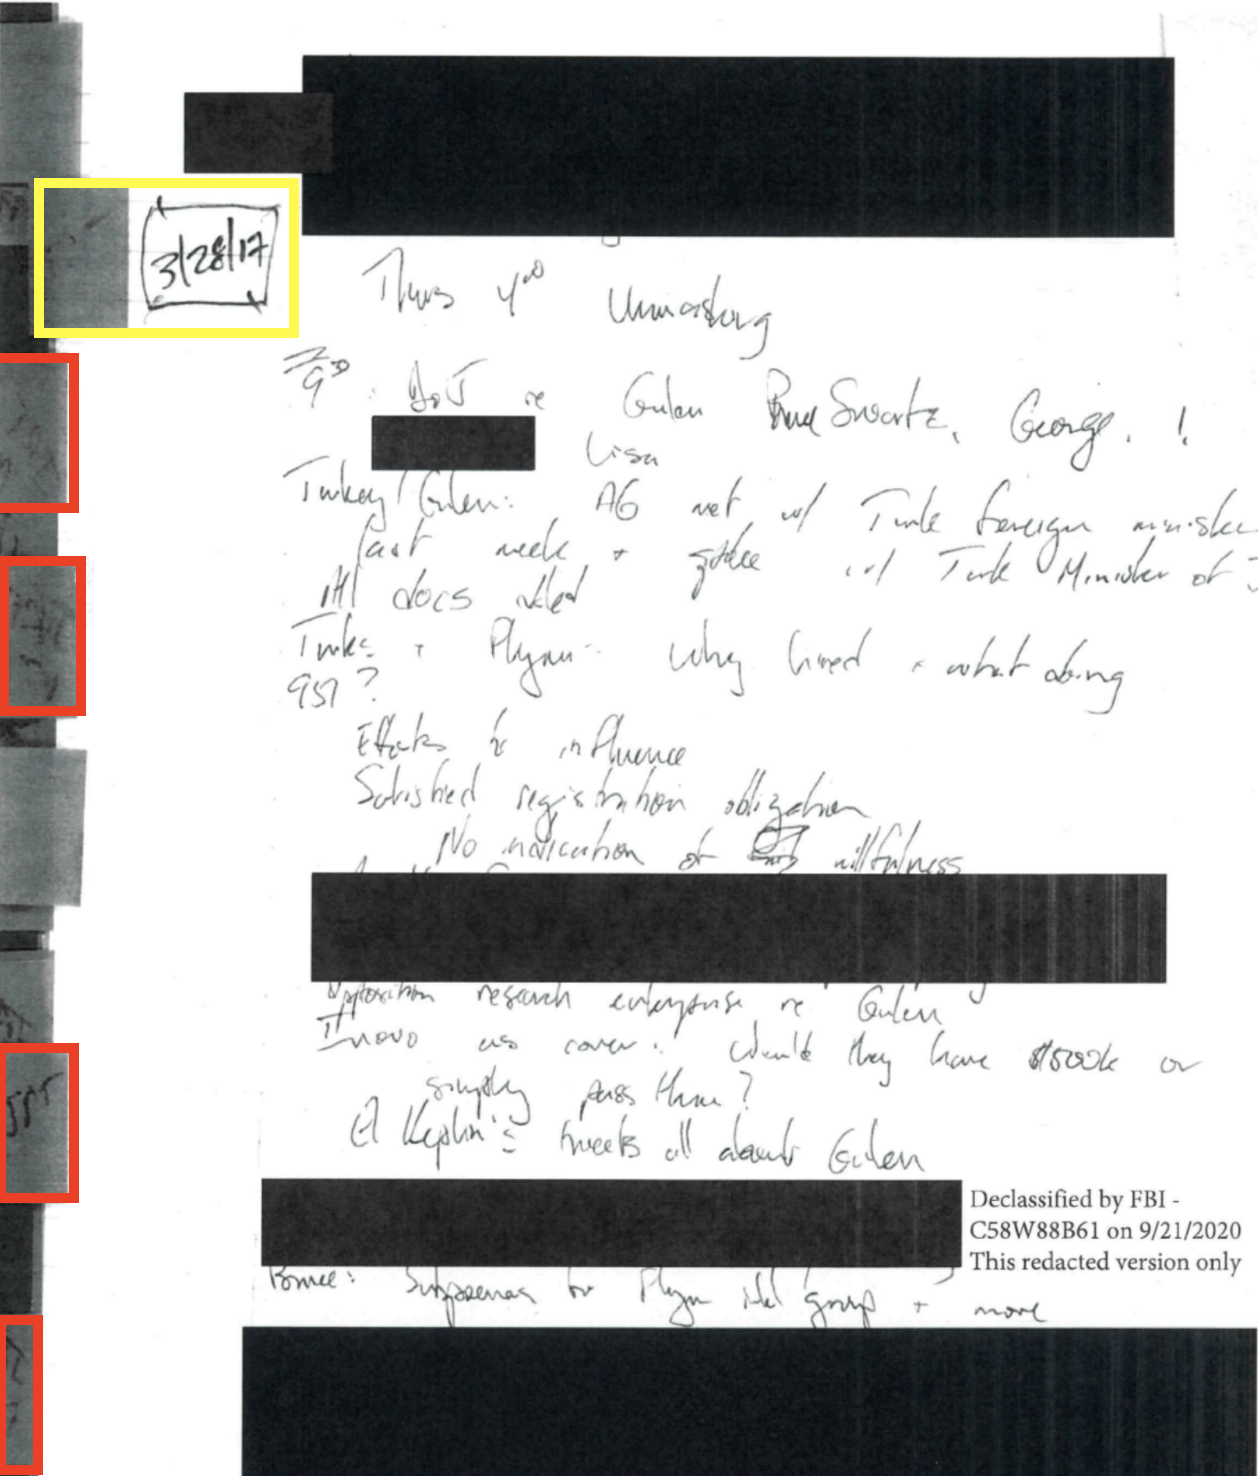 3/28/17
Thurs 4⁰⁰ Unmasking
9³⁰ : DoJ re Gulen Bruce Swartz, George, !
Lisa
Turkey/Gulen: AG met w/ Turk foreign minister
last week + spoke w/ Turk Minister of J
All docs
Turks + Flynn: Why hired + what doing
951?
Efforts to influence
Satisfied registration obligation
No indication of willfulness
Opposition research enterprise re Gulen
Inovo as cover. Would they have $500k or
simply pass thru?
tweets all about Gulen
Declassified by FBI -
C58W88B61 on 9/21/2020
This redacted version only
Bruce: Subpoenas for Flynn Intel group + more